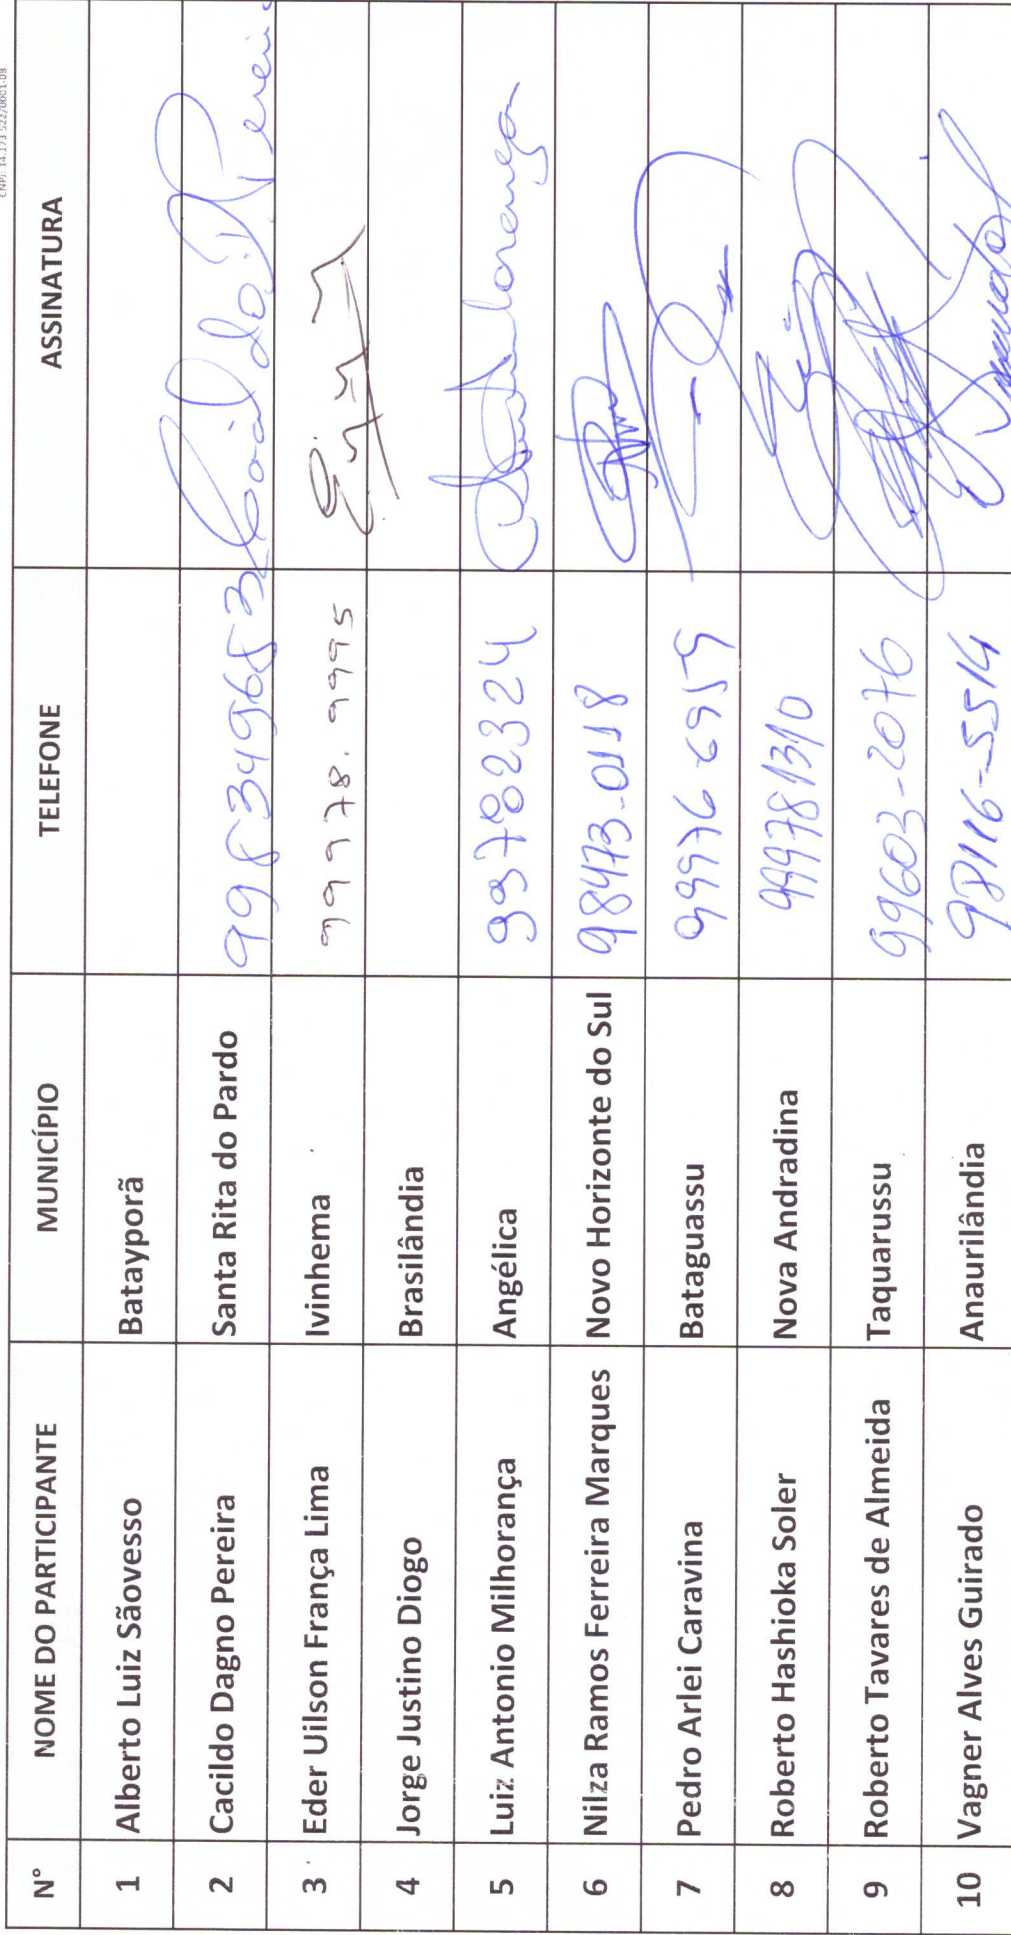 N° NOME DO PARTICIPANTE MUNICÍPIO TELEFONE ASSINATURA
1 Alberto Luiz Sãovesso Batayporã
2 Cacildo Dagno Pereira Santa Rita do Pardo Cacildo D Pereira
3 Eder Uilson França Lima Ivinhema 99978.9995
4 Jorge Justino Diogo Brasilândia
5 Luiz Antonio Milhorança Angélica 99782324
6 Nilza Ramos Ferreira Marques Novo Horizonte do Sul 98473-0118
7 Pedro Arlei Caravina Bataguassu 99976 6959
8 Roberto Hashioka Soler Nova Andradina 999781310
9 Roberto Tavares de Almeida Taquarussu 99603-2076
10 Vagner Alves Guirado Anaurilândia 98116-5514